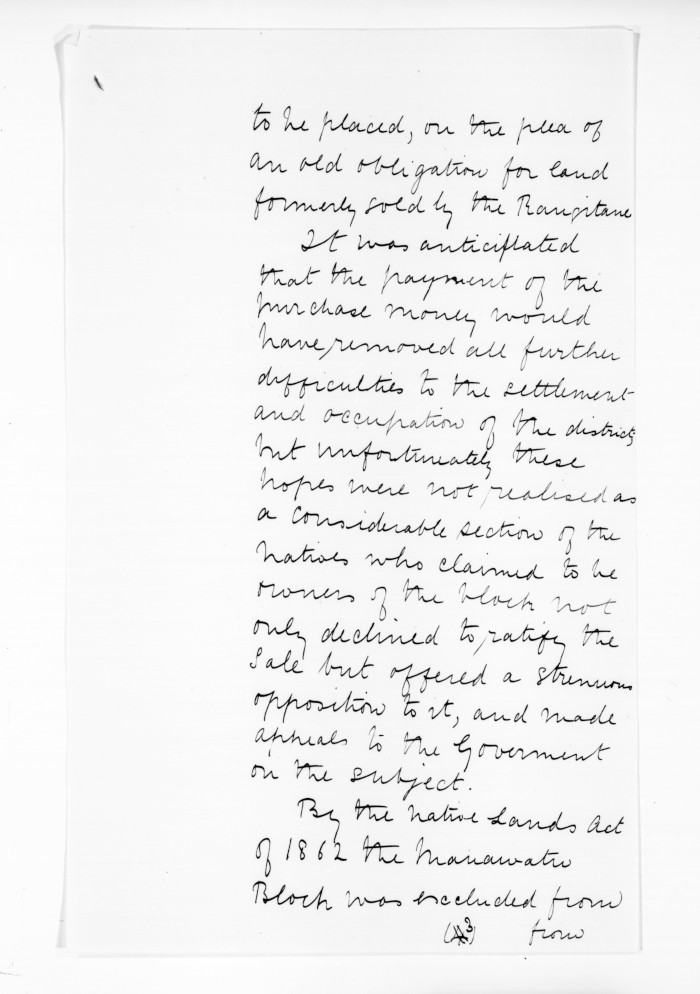 to be placed, on the plea of
an old obligation for land
formerly sold by the Rangitane
It was anticipated
that the payment of the
purchase money would
have removed all further
difficulties to the settlement
and occupation of the district
but unfortunately these
hopes were not realised as
a considerable section of the
Natives who claimed to be
owners of the block not
only declined to ratify the
Sale but offered a strenuous
opposition to it, and made
appeals to the Goverment
on the subject.
By the Native Lands Act
of 1862 the Manawatu
Block was excluded from
(3) from